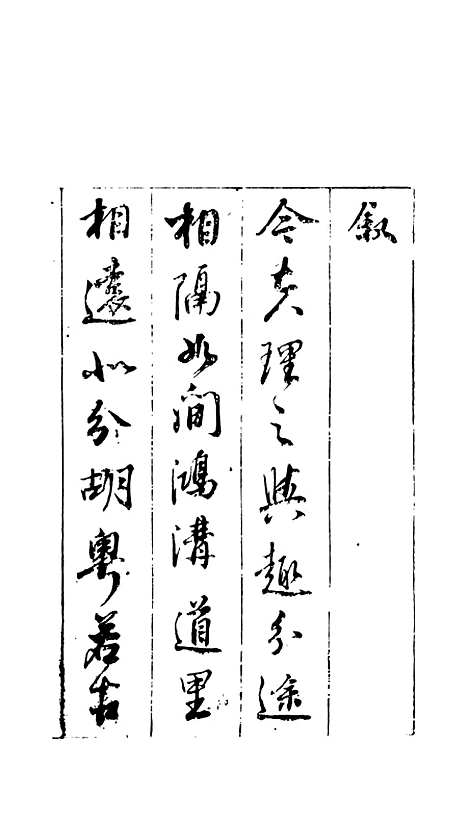 叙
今夫理之與趣分途
相隔如澗鴻溝道里
相遼不分胡粵若吉